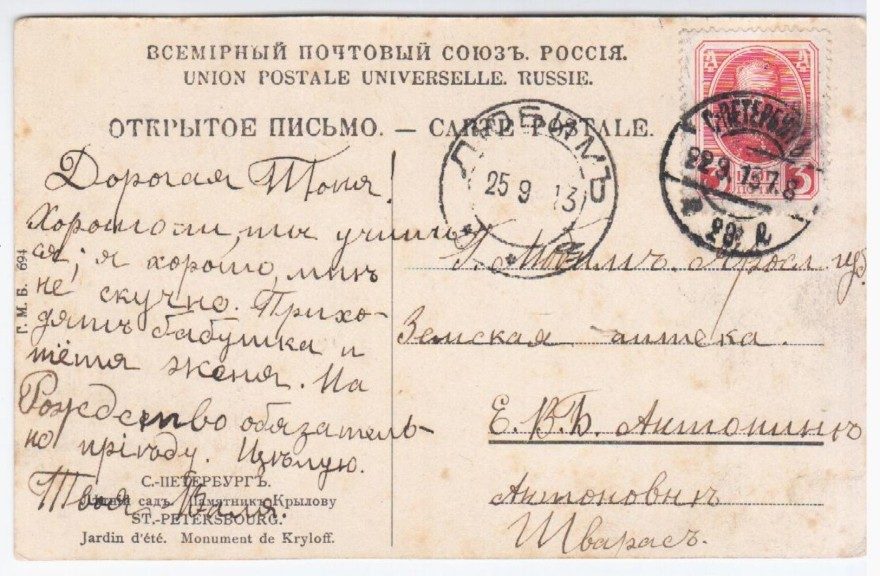 ВСЕМІРНЫЙ ПОЧТОВЫЙ СОЮЗЪ. РОССІЯ.
UNION POSTALE UNIVERSELLE. RUSSIE.
ОТКРЫТОЕ ПИСЬМО. — CARTE POSTALE.
ЛЮБИМЪ
25 9 13
С.ПЕТЕРБУРГЪ
22.9.13.7.8
Дорогая Тоня!
Хорошо ли ты учишь-
ся; я хорошо, мнѣ
не скучно. Прихо-
дятъ бабушка и
тётя Женя. На
Рождество обязатель-
но пріѣду. Цѣлую.
Твоя Валя.
Г. Любимъ. Яросл. губ.
Земская аптека.
Е. В Б. Антонинѣ
Антоновнѣ
Шварасъ.
Г. М. Б. 694
С.-ПЕТЕРБУРГЪ.
Лѣтній садъ. Памятникъ Крылову
ST.-PETERSBOURG.
Jardin d'été. Monument de Kryloff.